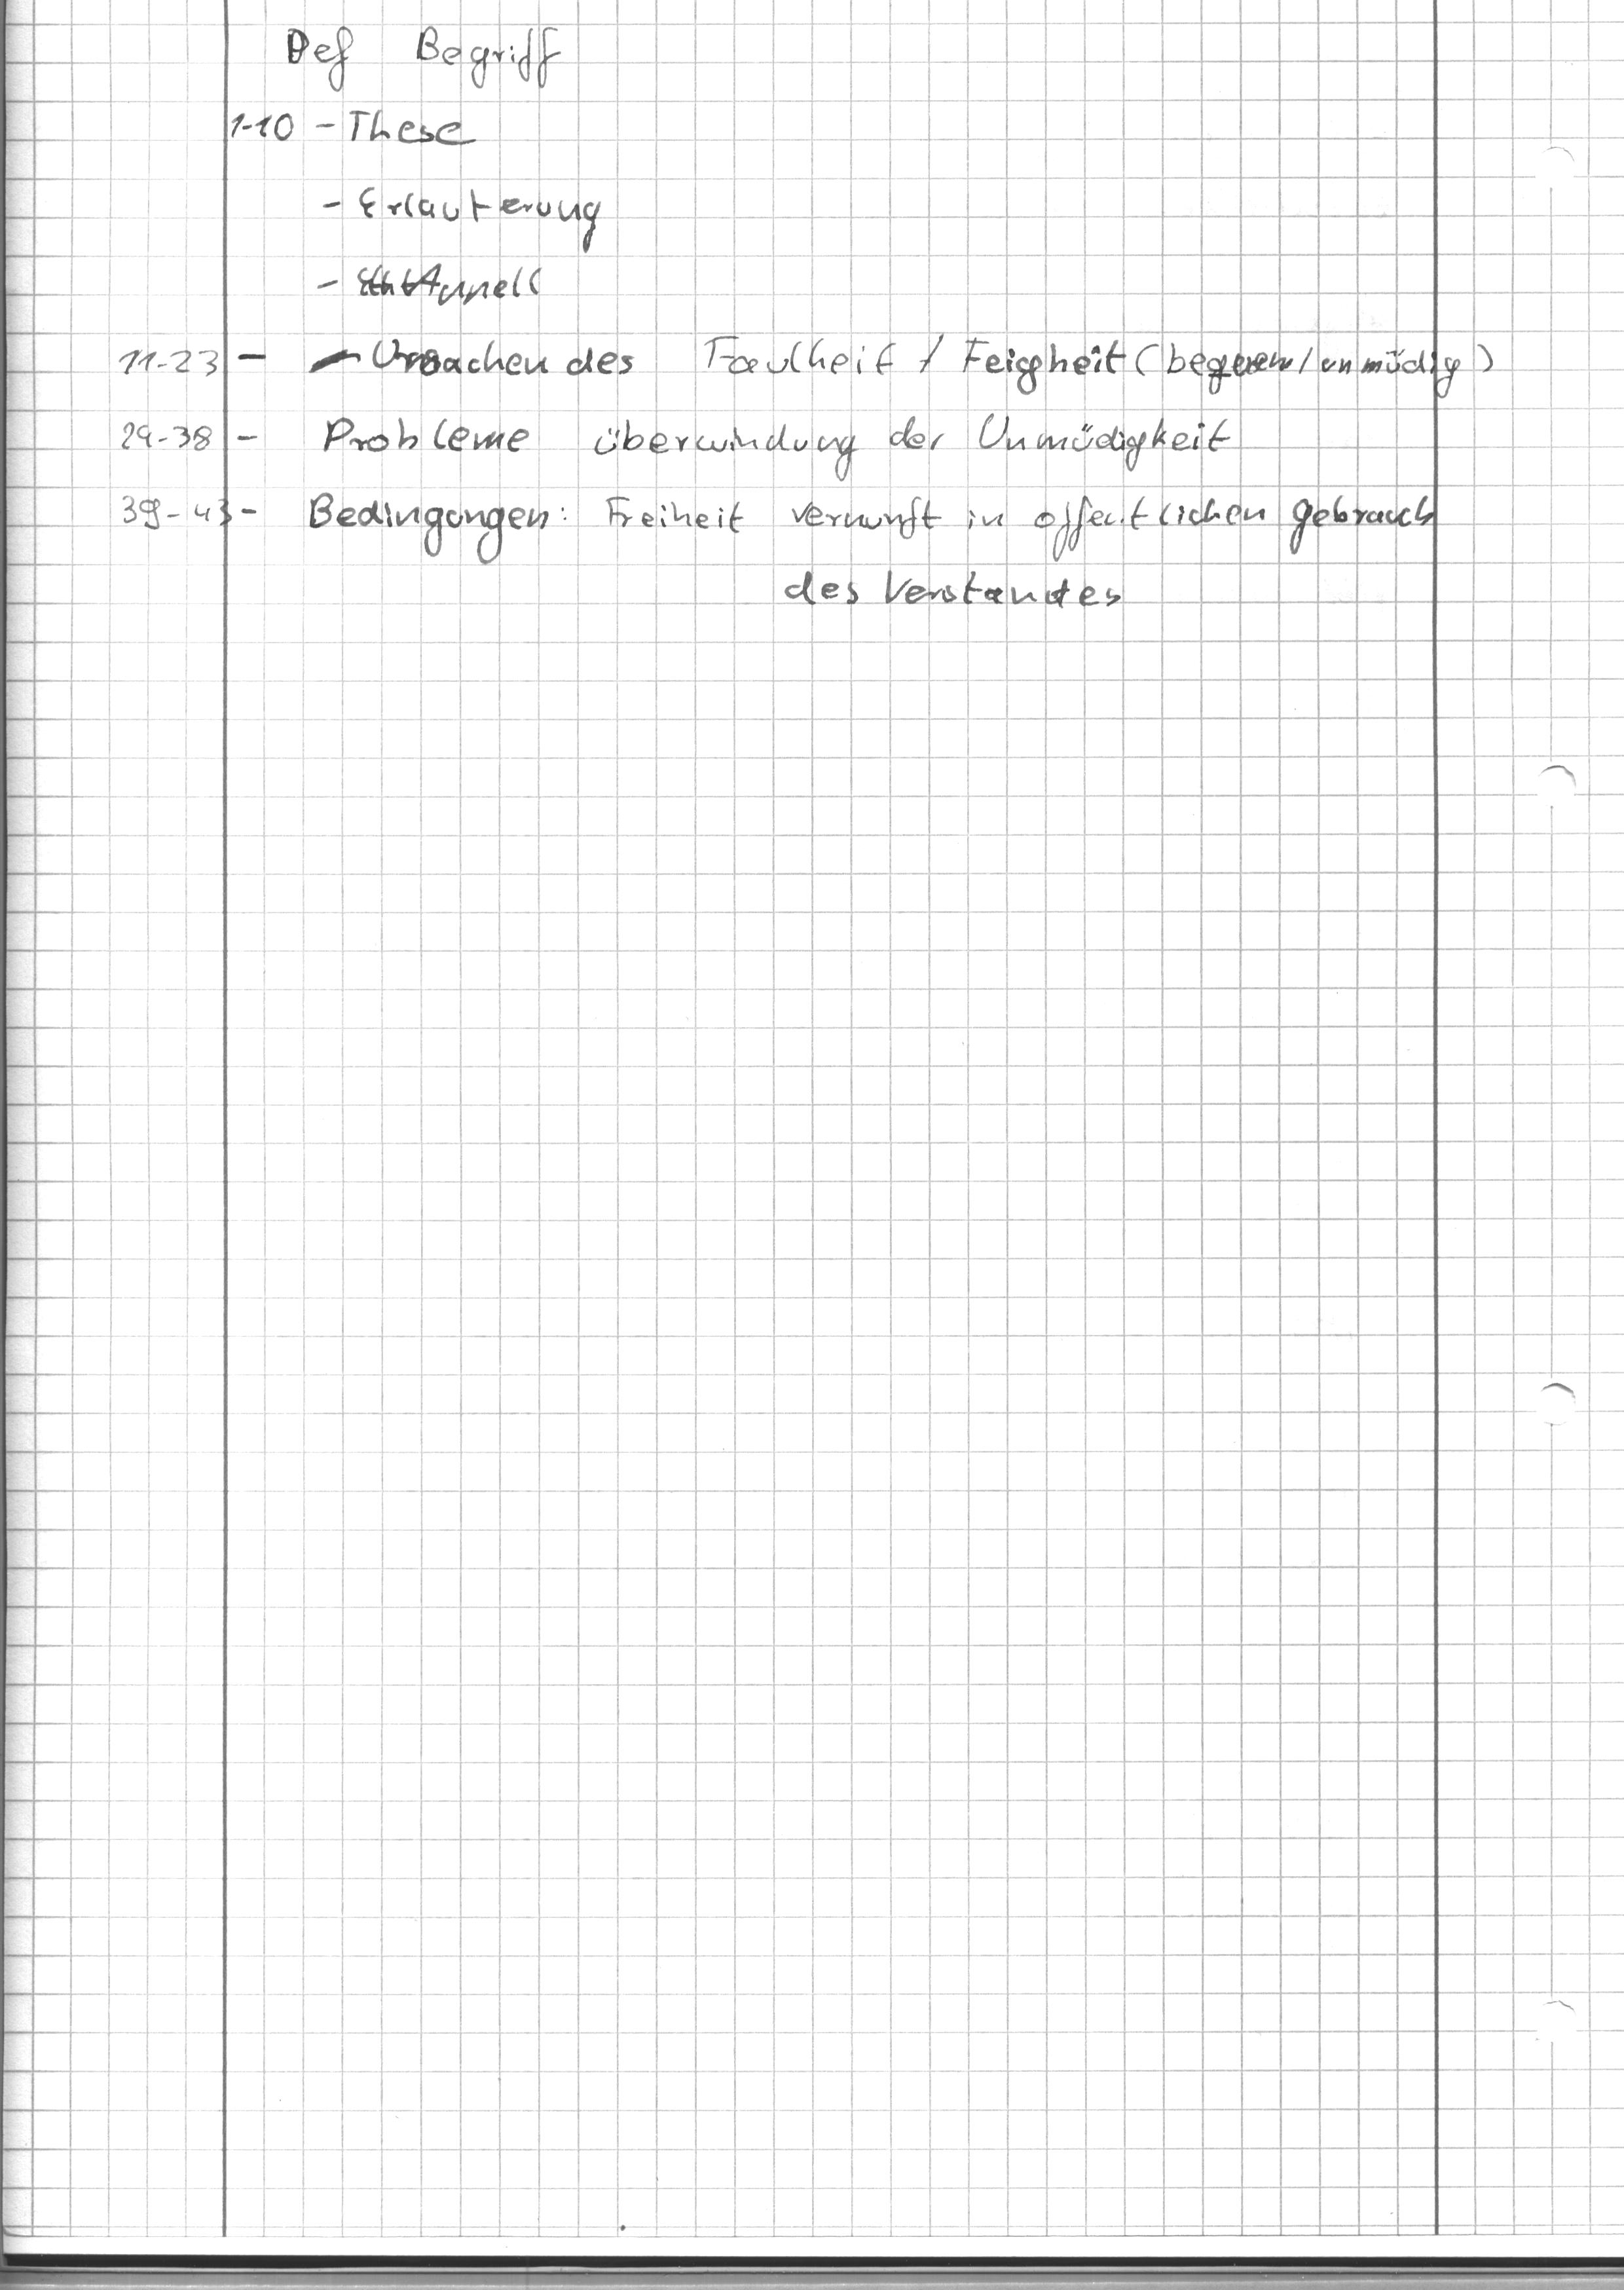 Def Begriff
1-10 - These
- Erläuterung
- Appell
11-23 - Ursachen des Faulheit / Feigheit (bequem / unmüdig)
24-38 - Probleme überwindung der Unmüdigkeit
39-43 - Bedingungen: Freiheit vernunft in offentlichen gebrauch
des Verstandes